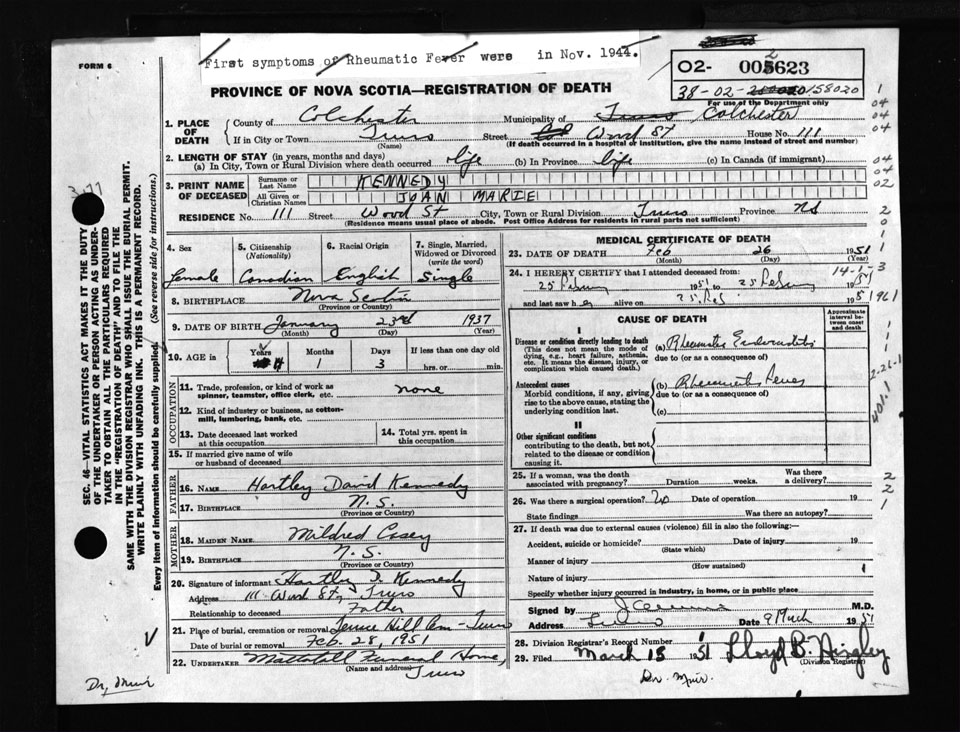 First symptoms of Rheumatic Fever were in Nov. 1944.
FORM 6
O2- 005623
2
38-02- 158020
For use of the Department only
PROVINCE OF NOVA SCOTIA—REGISTRATION OF DEATH
1. PLACE OF DEATH
County of Colchester Municipality of Truro Colchester
If in City or Town Truro Street Wood St House No. 111
(Name) (If death occurred in a hospital or institution, give the name instead of street and number)
2. LENGTH OF STAY (in years, months and days)
(a) In City, Town or Rural Division where death occurred life (b) In Province life (c) In Canada (if immigrant)
3. PRINT NAME OF DECEASED
Surname or Last Name KENNEDY
All Given or Christian Names JOAN MARIE
RESIDENCE No. 111 Street Wood St City, Town or Rural Division Truro Province NS
(Residence means usual place of abode. Post Office Address for residents in rural parts not sufficient)
4. Sex
female
5. Citizenship (Nationality)
Canadian
6. Racial Origin
English
7. Single, Married, Widowed or Divorced (write the word)
Single
8. BIRTHPLACE Nova Scotia
(Province or Country)
9. DATE OF BIRTH January 23rd 1937
(Month) (Day) (Year)
10. AGE in
Years 14 Months 1 Days 3 If less than one day old
hrs. or min.
OCCUPATION
11. Trade, profession, or kind of work as spinner, teamster, office clerk, etc. none
12. Kind of industry or business, as cotton-mill, lumbering, bank, etc.
13. Date deceased last worked at this occupation
14. Total yrs. spent in this occupation
15. If married give name of wife or husband of deceased
FATHER
16. NAME Hartley David Kennedy
17. BIRTHPLACE N.S.
(Province or Country)
MOTHER
18. MAIDEN NAME Mildred Casey
19. BIRTHPLACE N.S.
(Province or Country)
20. Signature of informant Hartley D. Kennedy
Address 111 Wood St, Truro
Relationship to deceased Father
21. Place of burial, cremation or removal Terrace Hill Cem - Truro
Date of burial or removal Feb. 28, 1951
22. UNDERTAKER Mattatall Funeral Home,
(Name and address) Truro
Dr. Muir
MEDICAL CERTIFICATE OF DEATH
23. DATE OF DEATH Feb 26 1951
(Month) (Day) (Year)
24. I HEREBY CERTIFY that I attended deceased from:
14-1-3
25 1951 to 25 1951
and last saw her alive on 25 Feb 1951
CAUSE OF DEATH
Approximate interval between onset and death
I
Disease or condition directly leading to death
(This does not mean the mode of dying, e.g., heart failure, asthenia, etc. It means the disease, injury, or complication which caused death.)
(a) Rheumatic Endocarditis
due to (or as a consequence of)
Antecedent causes
Morbid conditions, if any, giving rise to the above cause, stating the underlying condition last.
(b) Rheumatic Fever
due to (or as a consequence of)
(c)
II
Other significant conditions
contributing to the death, but not related to the disease or condition causing it.
25. If a woman, was the death associated with pregnancy? Duration weeks. Was there a delivery?
26. Was there a surgical operation? No Date of operation 19
State findings Was there an autopsy?
27. If death was due to external causes (violence) fill in also the following:—
Accident, suicide or homicide? Date of injury 19
(State which)
Manner of injury
(How sustained)
Nature of injury
Specify whether injury occurred in industry, in home, or in public place
Signed by M.D.
Address Truro Date 9 March 1951
28. Division Registrar's Record Number
29. Filed March 15 1951 Lloyd B. Hingley
(Division Registrar)
Dr. Muir.
SEC. 46—VITAL STATISTICS ACT MAKES IT THE DUTY
OF THE UNDERTAKER OR PERSON ACTING AS UNDER-
TAKER TO OBTAIN ALL THE PARTICULARS REQUIRED
IN THE "REGISTRATION OF DEATH" AND TO FILE THE
SAME WITH THE DIVISION REGISTRAR WHO SHALL ISSUE THE BURIAL PERMIT.
WRITE PLAINLY WITH UNFADING INK. THIS IS A PERMANENT RECORD.
Every item of information should be carefully supplied. (See reverse side for instructions.)
1
04
04
04
04
04
02
2
0
1
1961
2-26-1
401.1
2
2
1
1